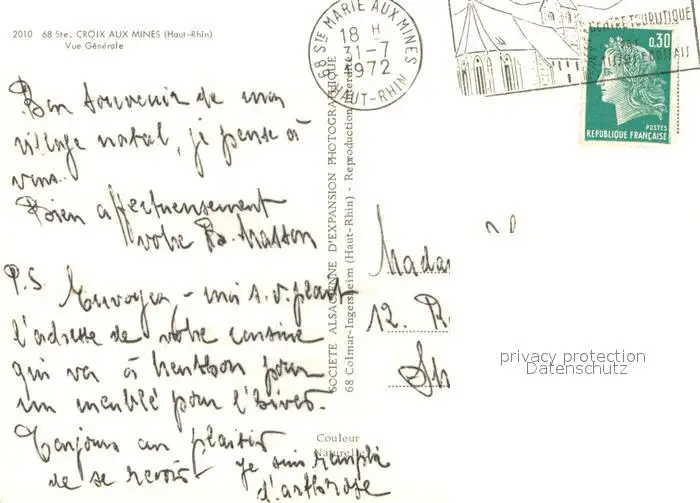 2010 68 Ste. CROIX AUX MINES (Haut-Rhin)
Vue Générale
68 STE MARIE AUX MINES
18 H
31-7
1972
HAUT-RHIN
CENTRE TOURISTIQUE
0,30
POSTES
REPUBLIQUE FRANÇAISE
Bon souvenir de mon
village natal, je pense à
vous.
Bien affectueusement
votre B. Masson
P.S. Envoyez-moi s.v.plait
l'adresse de votre cousine
qui va à Menthon pour
un meublé pour l'hiver.
Toujours au plaisir
de se revoir. Je suis remplie
d'arthrose
SOCIETE ALSACIENNE D'EXPANSION PHOTOGRAPHIQUE
68 Colmar-Ingersheim (Haut-Rhin) - Reproduction interdite
Couleur
Naturelle
Mada
12. R
privacy protection
Datenschutz